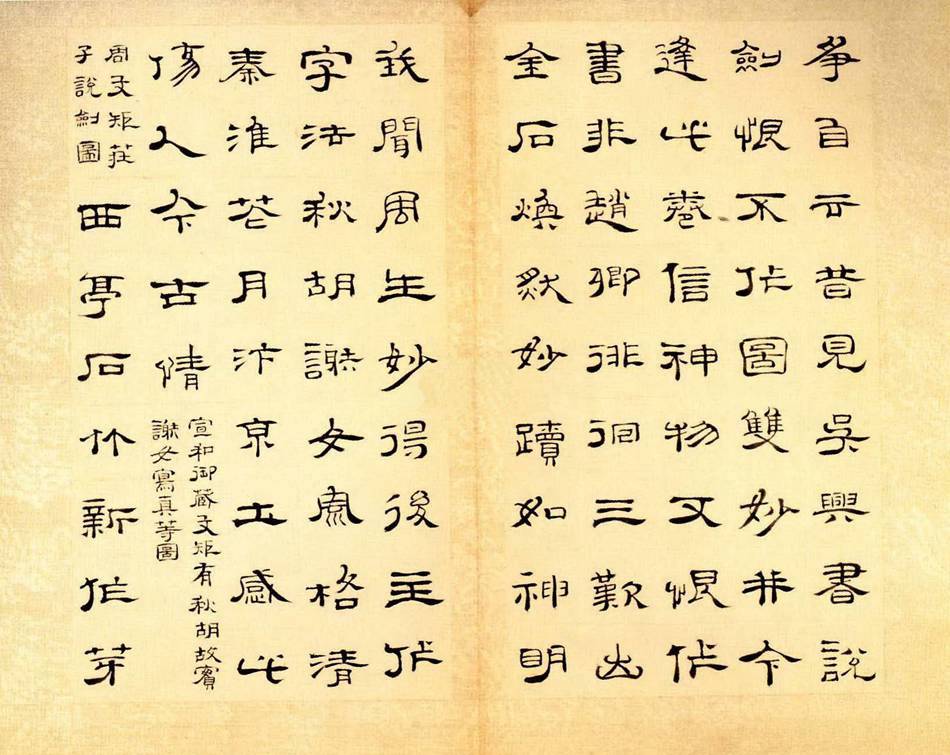 爭自云昔見吳興書說
劍恨不作圖雙妙并今
逢此卷信神物又恨作
書非趙卿徘徊三歎出
金石煥然妙蹟如神明
我聞周生妙得後主作
字法秋胡謝女風格清
秦淮花月汴京土感此
傷人今古情
宣和御藏文矩有秋胡故賓
謝女寫真等圖
周文矩莊
子說劍圖
西亭石竹新作芽